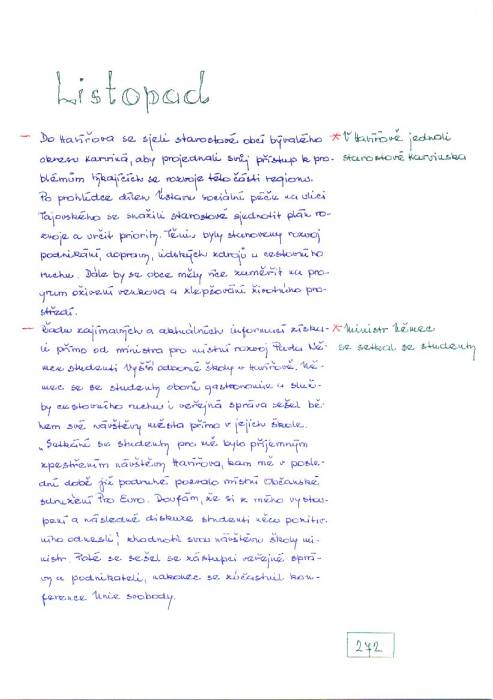 Listopad
— Do Havířova se sjeli starostové obcí bývalého
okresu Karviná, aby projednali svůj přístup k pro-
blémům týkajících se rozvoje této části regionu.
Po prohlídce dílen Ústavu sociální péče na ulici
Tajovského se snažili starostové sjednotit plán ro-
zvoje a určit priority. Těmi byly stanoveny rozvoj
podnikání, dopravy, lidských zdrojů a cestovního
ruchu. Dále by se obce měly více zaměřit na pro-
gram oživení venkova a zlepšování životního pro-
středí.
* V Havířově jednali
starostové Karvinska
— Řadu zajímavých a aktuálních informací získa-
li přímo od ministra pro místní rozvoj Pavla Ně-
mce studenti Vyšší odborné školy v Havířově. Ně-
mec se se studenty oborů gastronomie a služ-
by cestovního ruchu i veřejná správa sešel bě-
hem své návštěvy města přímo v jejich škole.
„Setkání se studenty pro mě bylo příjemným
zpestřením návštěvy Havířova, kam mě v posle-
dní době již podruhé pozvalo místní Občanské
sdružení Pro Euro. Doufám, že si z mého vystou-
pení a následné diskuze studenti něco pozitiv-
ního odnesli", zhodnotil svou návštěvu školy mi-
nistr. Poté se sešel se zástupci veřejné sprá-
vy a podnikateli, nakonec se zúčastnil kon-
ference Unie svobody.
* Ministr Němec
se setkal se studenty
272